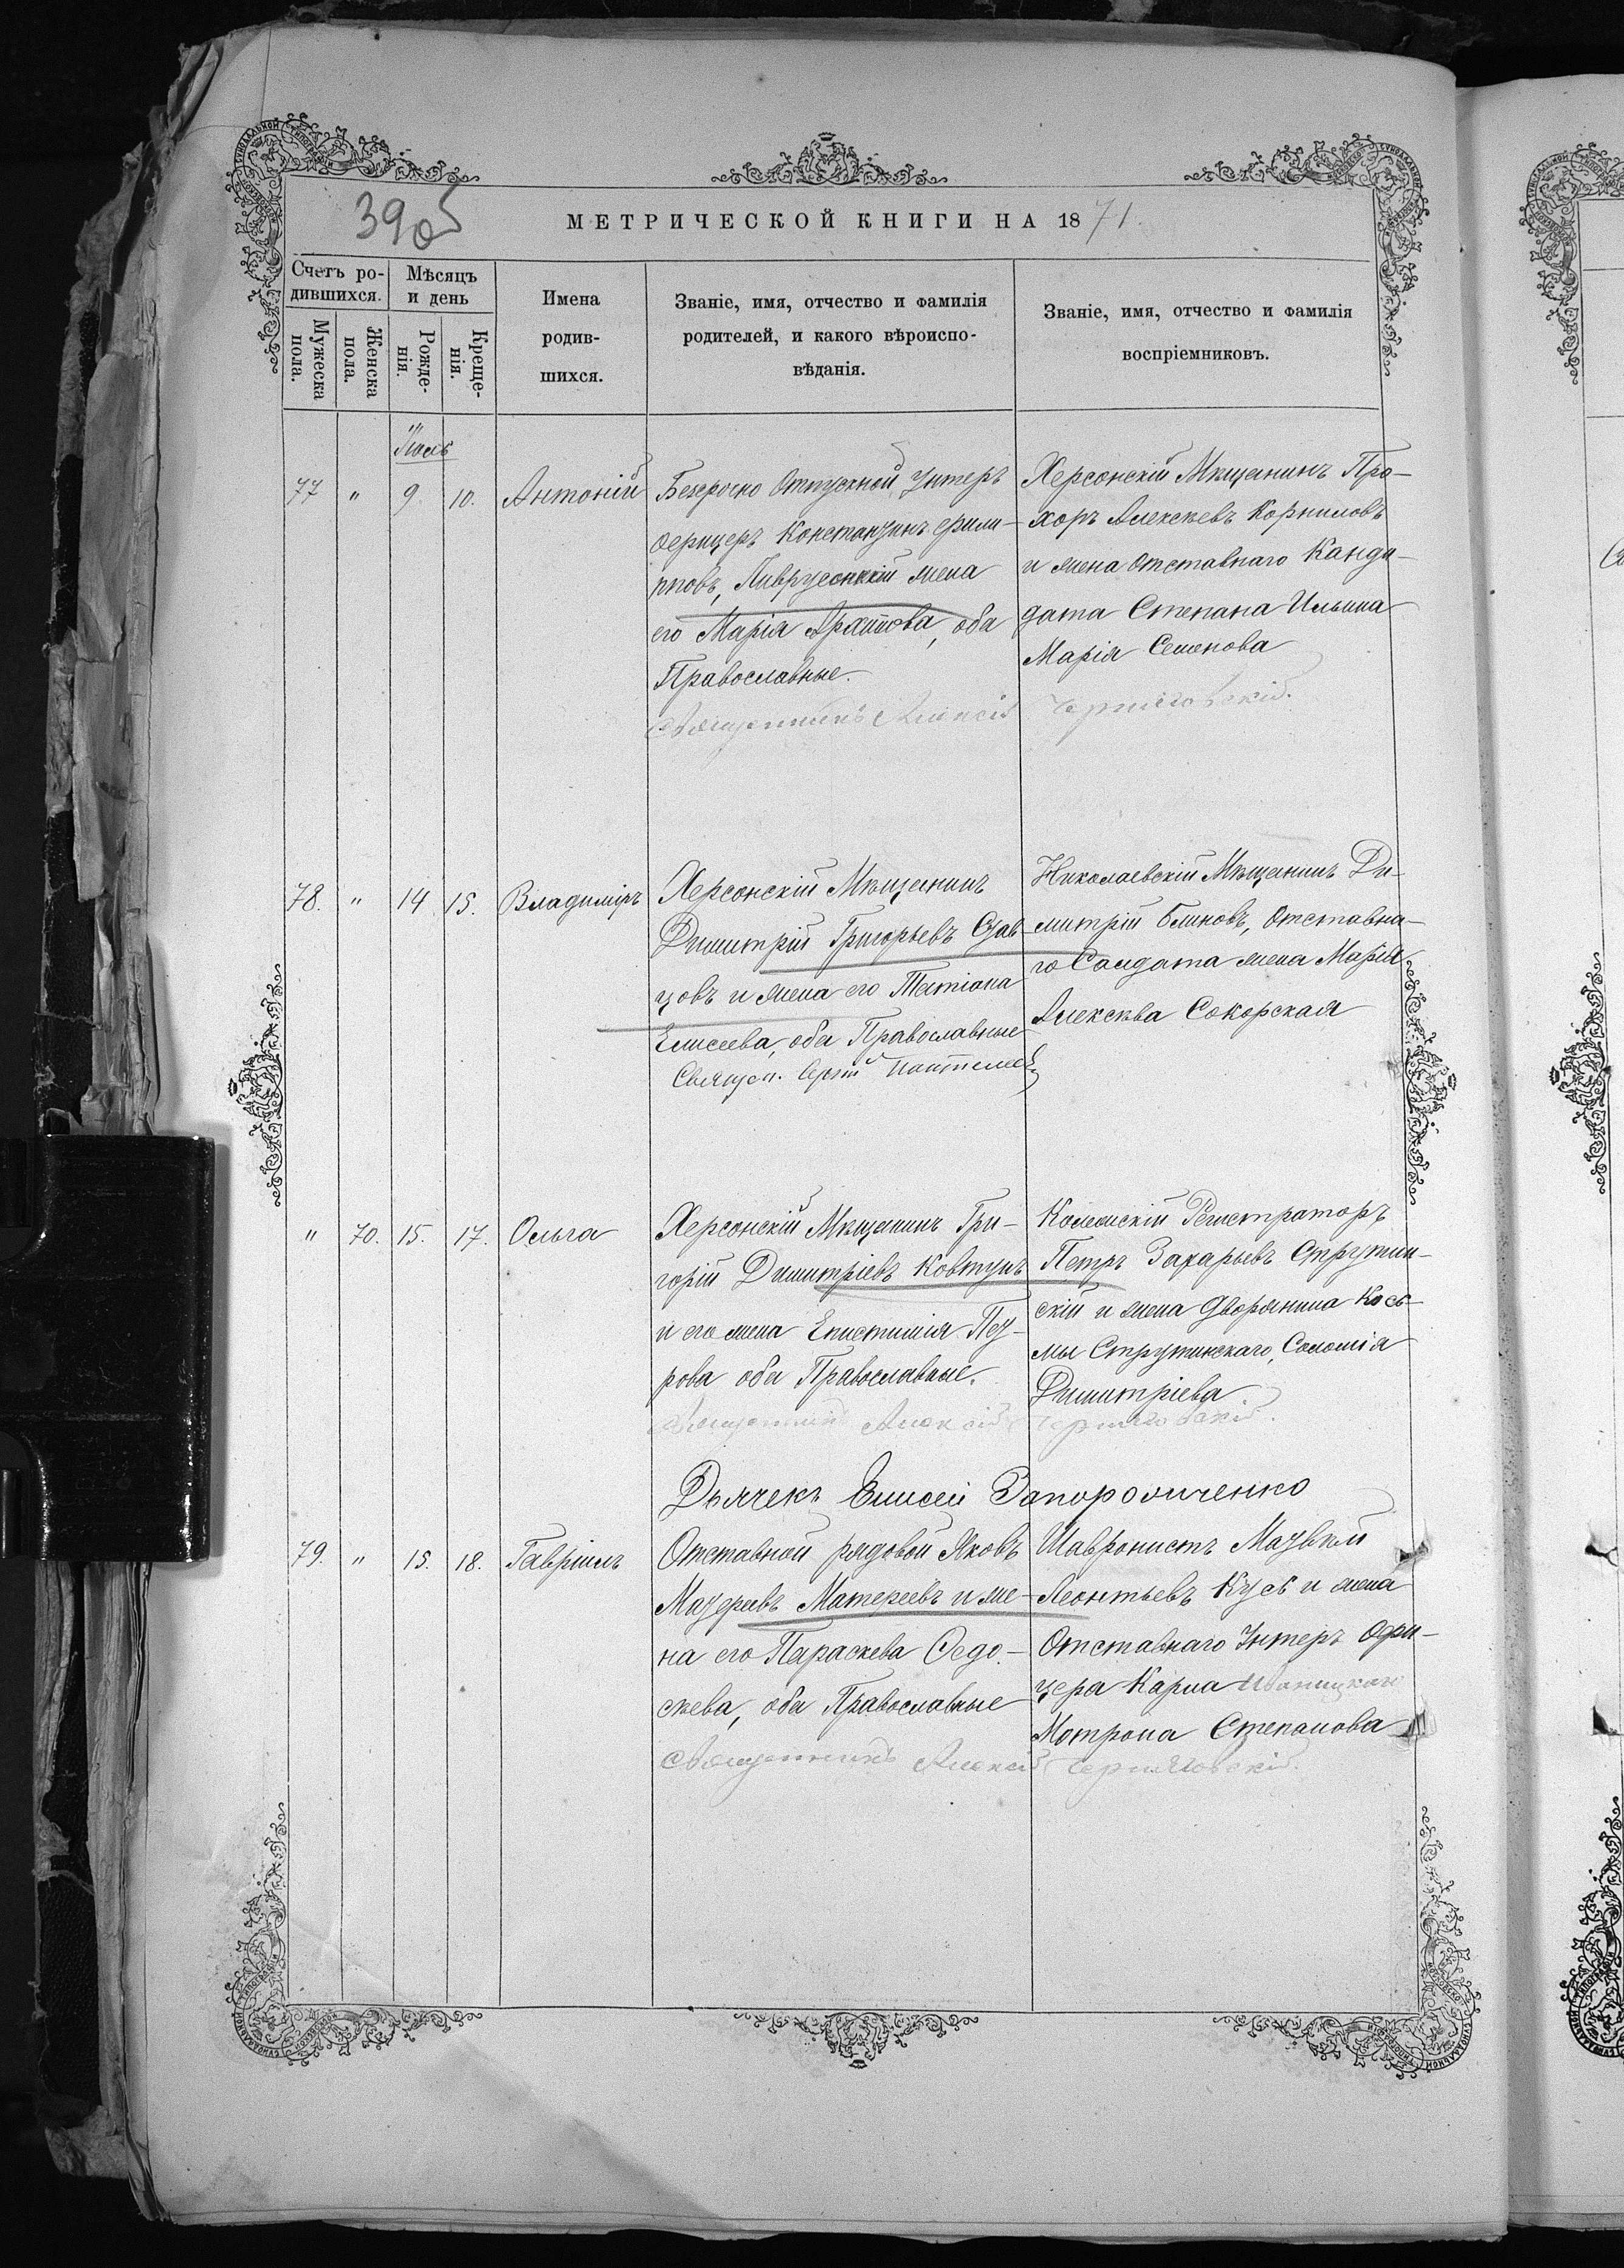 390б
МЕТРИЧЕСКОЙ КНИГИ НА 1871.
Счетъ ро-
дившихся.
Мужеска
пола.
Женска
пола.
Мѣсяцъ
и день
Рожде-
нія.
Креще-
нія.
Имена
родив-
шихся.
Званіе, имя, отчество и фамилія
родителей, и какого вѣроиспо-
вѣданія.
Званіе, имя, отчество и фамилія
воспріемниковъ.
77 " 9 10. Антоній
Безсрочно Отпускной Унтеръ
Офицеръ Константинъ Фили-
пповъ, жена
его Марія Архипова, оба
Православные.
Священникъ Алексій Черняговскій.
Херсонскій Мѣщанинъ Про-
хоръ Алексѣевъ Корниловъ
и жена отставнаго Канди-
дата Степана Ильина
Марія Семенова
78. " 14 15. Владиміръ
Херсонскій Мѣщанинъ
Димитрій Григорьевъ
цовъ и жена его Татіана
Елисеева, оба Православные
Священ. Сергій
Николаевскій Мѣщанинъ Ди-
митрій Блиновъ, Отставна-
го Солдата жена Марія
Алексѣева Сокорская
" 70. 15. 17. Ольга
Херсонскій Мѣщанинъ Гри-
горій Димитріевъ Ковтунъ
и его жена Епистимія Пет-
рова оба Православные.
Священникъ Алексій Черняговскій.
Колежскій Регистраторъ
Петръ Захарьевъ Струтин-
скій и жена Дворянина Кось-
мы Струтинскаго, Соломія
Димитріева
Дьячекъ Елисей Запорожченко
79. " 15. 18. Гавріилъ
Отставной рядовой Яковъ
Матфеевъ Матфеевъ и же-
на его Параскева Федо-
сѣева, оба Православные
Священникъ Алексій Черняговскій.
Леонтьевъ Кусъ и жена
Отставнаго Унтеръ Офи-
цера Карпа
Мотрона Степанова